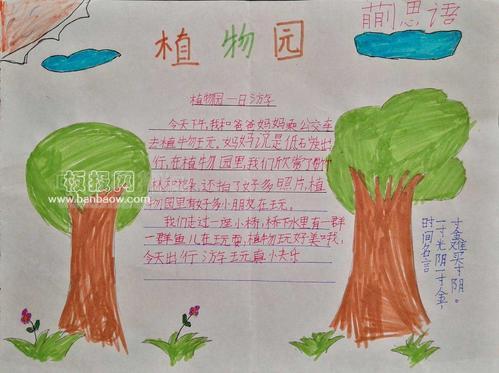 植物园
蒯思语
植物园一日游
今天下午，我和爸爸妈妈乘公交车
去植牛勿玩，妈妈说是低石炭出
行，在植物园里，我们欣赏了
林和花朵，还拍了好多照片，植
物园里有好多小朋友在玩。
我们走过一座小桥，桥下水里有一群
一群鱼儿在玩耍，植物玩好美哦，
今天出行游玩真快乐
时间名言
一寸光阴一寸金，
寸金难买寸光阴。
板报网
www.banbaow.com